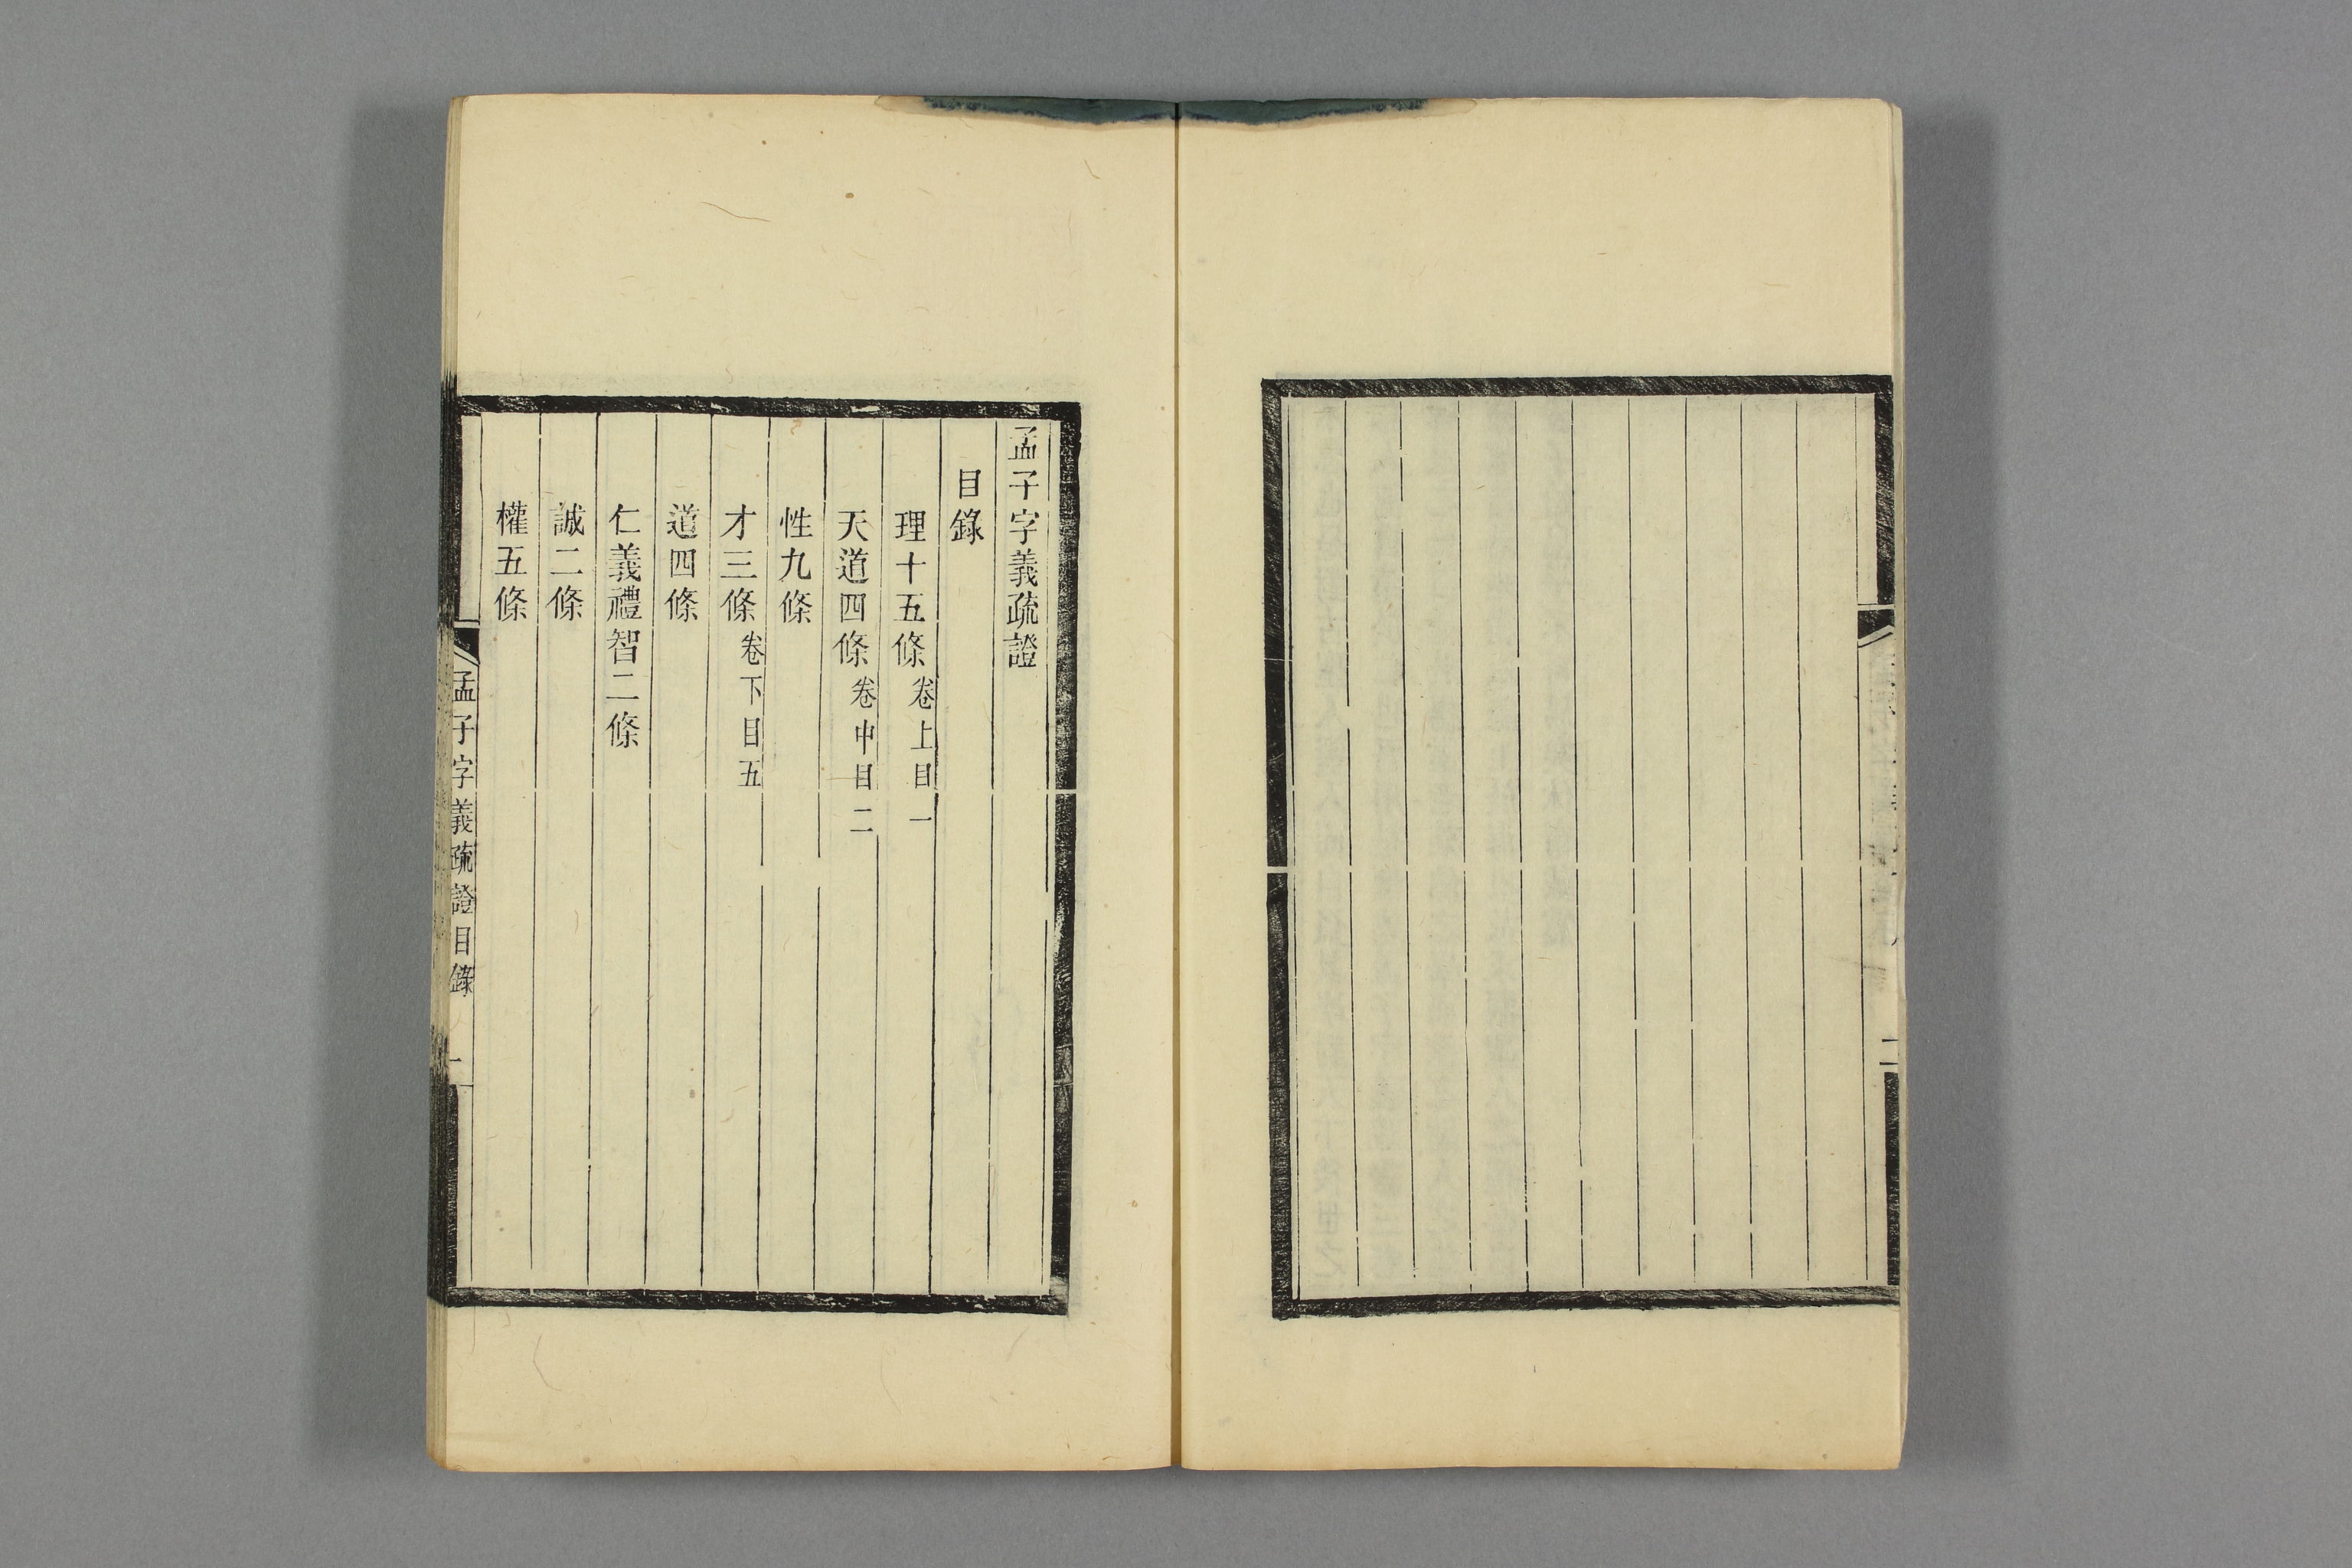 二
孟子字義疏證
目錄
理十五條 卷上目一
天道四條 卷中目二
性九條
才三條 卷下目五
道四條
仁義禮智二條
誠二條
權五條
孟子字義疏證目錄 一